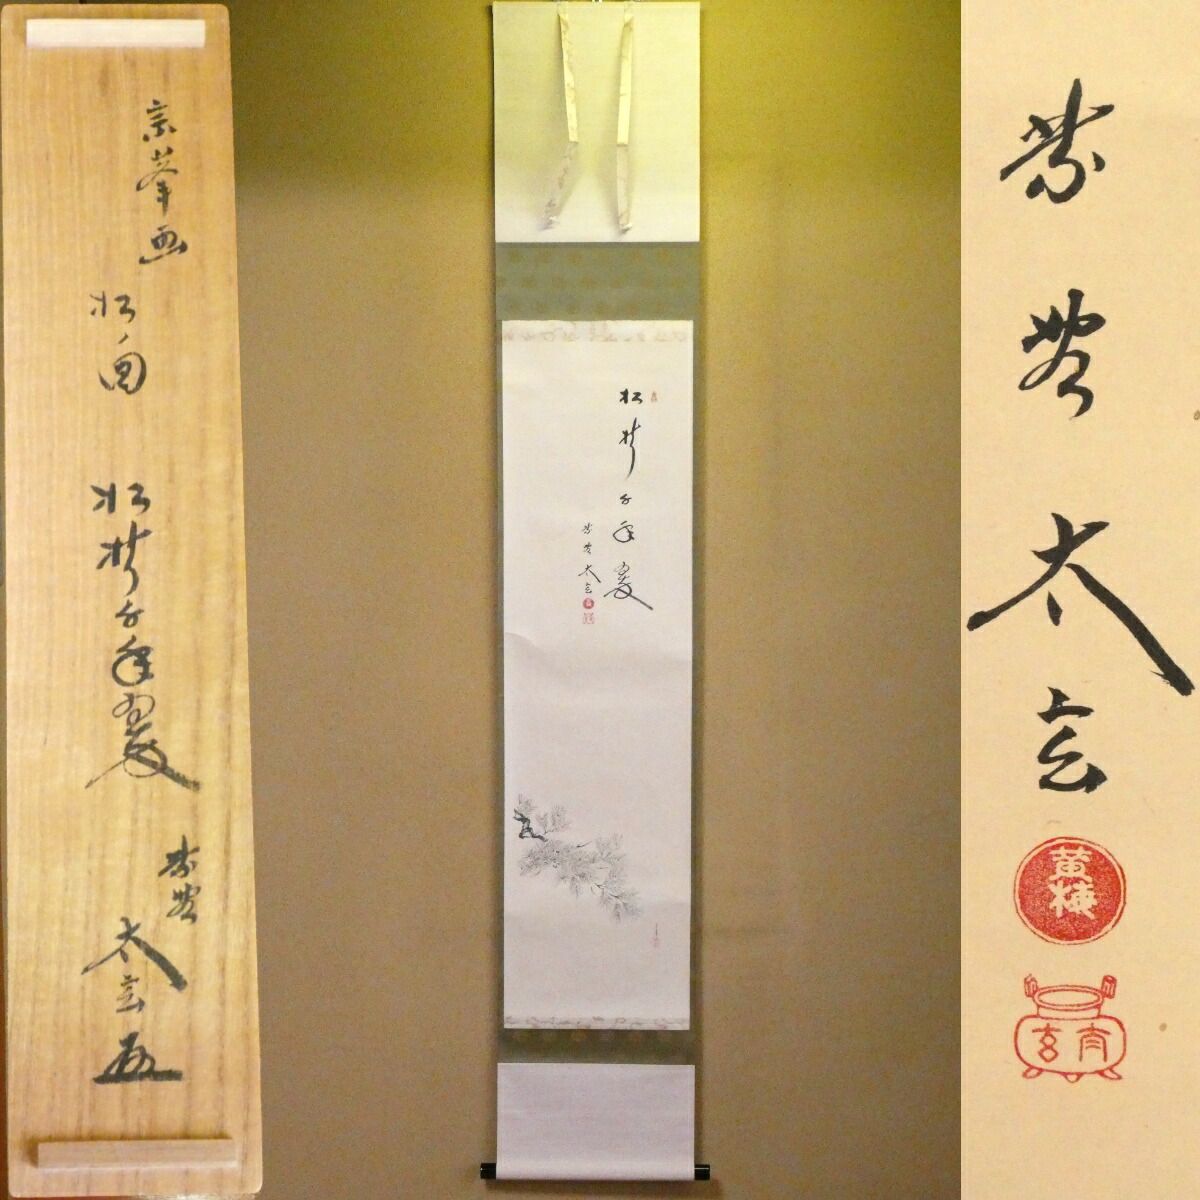 宗峯画
松ノ図
松樹千年翠
紫野
太玄
松樹千年翠
紫野太玄
紫野太玄
黄梅
玄